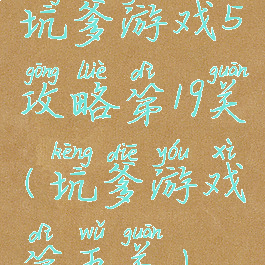 坑爹游戏5
gōng lüè dì guān
攻略第19关
kēng diē yóu xì
(坑爹游戏
dì wǔ guān
第五关)